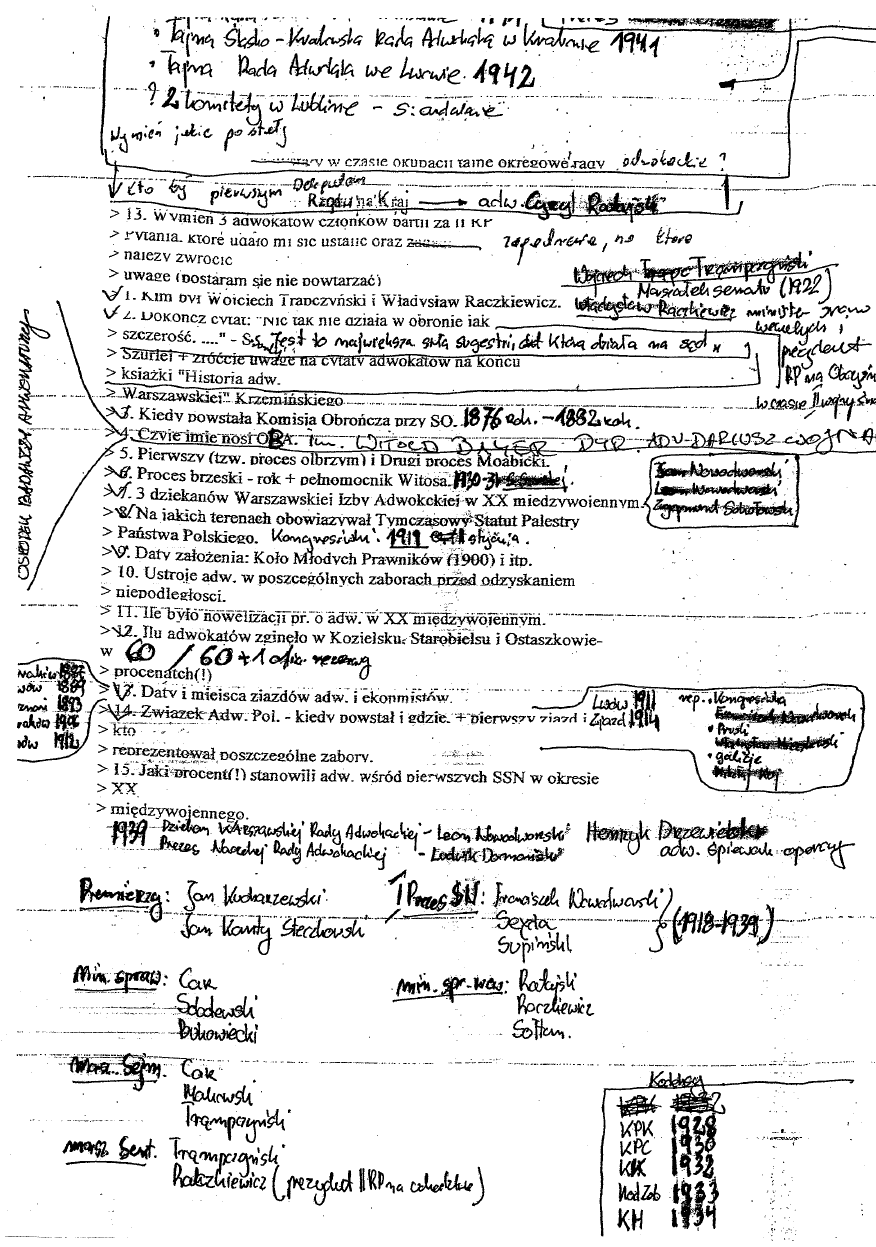 • Tajna Śląsko - Krakowska Rada Adwokacka w Krakowie 1941
• Tajna Rada Adwokacka we Lwowie. 1942
? 2 komitety w Lublinie -
Wymień jakie powstały
w czasie okupacji tajne okręgowe rady adwokackie ?
Kto był pierwszym Delegatem
Rządu na Kraj → adw. Cyryl Ratajski
> 13. Wymień 3 adwokatów członków partii za II RP
> Pytania, które udało mi się ustalić oraz zagadnienia, na które
> należy zwrócić
> uwagę (postaram się nie powtarzać)
Marszałek senatu (1922)
> 1. Kim był Wojciech Trąpczyński i Władysław Raczkiewicz.
Władysław Raczkiewicz minister spraw
wewnętrznych i
prezydent
RP na Obczyźnie
w czasie II wojny św
> 2. Dokończ cytat: "Nic tak nie działa w obronie jak
> szczerość. ....." - Jest to największa siła sugestii, dat która działa na sąd
> Szurlej + zróćcie uwagę na cytaty adwokatów na końcu
> książki "Historia adw.
> Warszawskiej" Krzemińskiego
> 3. Kiedy powstała Komisja Obrończa przy SO. 1876 rok. - 1882 rok.
> 4. Czyje imię nosi OBA. Im. WITOLD BAYER DYR. ADV-DARIUSZ WOJNA
OŚRODEK BADAWCZY ADWOKATURY
> 5. Pierwszy (tzw. proces olbrzym) i Drugi proces Moabicki.
> 6. Proces brzeski - rok + pełnomocnik Witosa. 1930-31
> 7. 3 dziekanów Warszawskiej Izby Adwokckiej w XX międzywojennym.
Jan Nowodworski
Leon Nowodworski
Zygmunt Sokołowski
> 8. Na jakich terenach obowiązywał Tymczasowy Statut Palestry
> Państwa Polskiego. Kongresówki. 1919 stycznia.
> 9. Daty założenia: Koło Młodych Prawników (1900) i itp.
> 10. Ustroje adw. w poszczególnych zaborach przed odzyskaniem
> niepodległości.
> 11. Ile było nowelizacji pr. o adw. w XX międzywojennym.
> 12. Ilu adwokatów zginęło w Kozielsku, Starobielsu i Ostaszkowie-
w 60 / 60 + 1 rezerwy
> procenatch(!)
> 13. Daty i miejsca zjazdów adw. i ekonmistów.
1889
1893
1906
1912
> 14. Związek Adw. Pol. - kiedy powstał i gdzie. + pierwszy zjazd i
Lwów 1911
Zjazd 1914
rep.. Kongresówka
• Pruski
• galicje
> kto
> reprezentował poszczególne zabory.
> 15. Jaki procent(!) stanowili adw. wśród pierwszych SSN w okresie
> XX
> międzywojennego.
1939 Dziekan Warszawskiej Rady Adwokackiej - Leon Nowodworski
Prezes Naczelnej Rady Adwokackiej - Ludwik Domański
Henryk Drzewiecki
adw. śpiewak operowy
Premierzy: Jan Kucharzewski
Jan Kanty Steczkowski
I Prezes SN: Franciszek Nowodworski
Seyda
Supiński
(1918-1939)
Min. spraw: Car
Sobolewski
Bukowiecki
min. spr. wew: Ratajski
Raczkiewicz
Sołtan.
marsz. Sejm. Car
Makowski
Trąmpczyński
marsz Sent. Trąmpczyński
Raczkiewicz (prezydent II RP na uchodźstwie)
Kodeksy
KPK 1928
KPC 1930
KK 1932
Kod Zob 1933
KH 1934